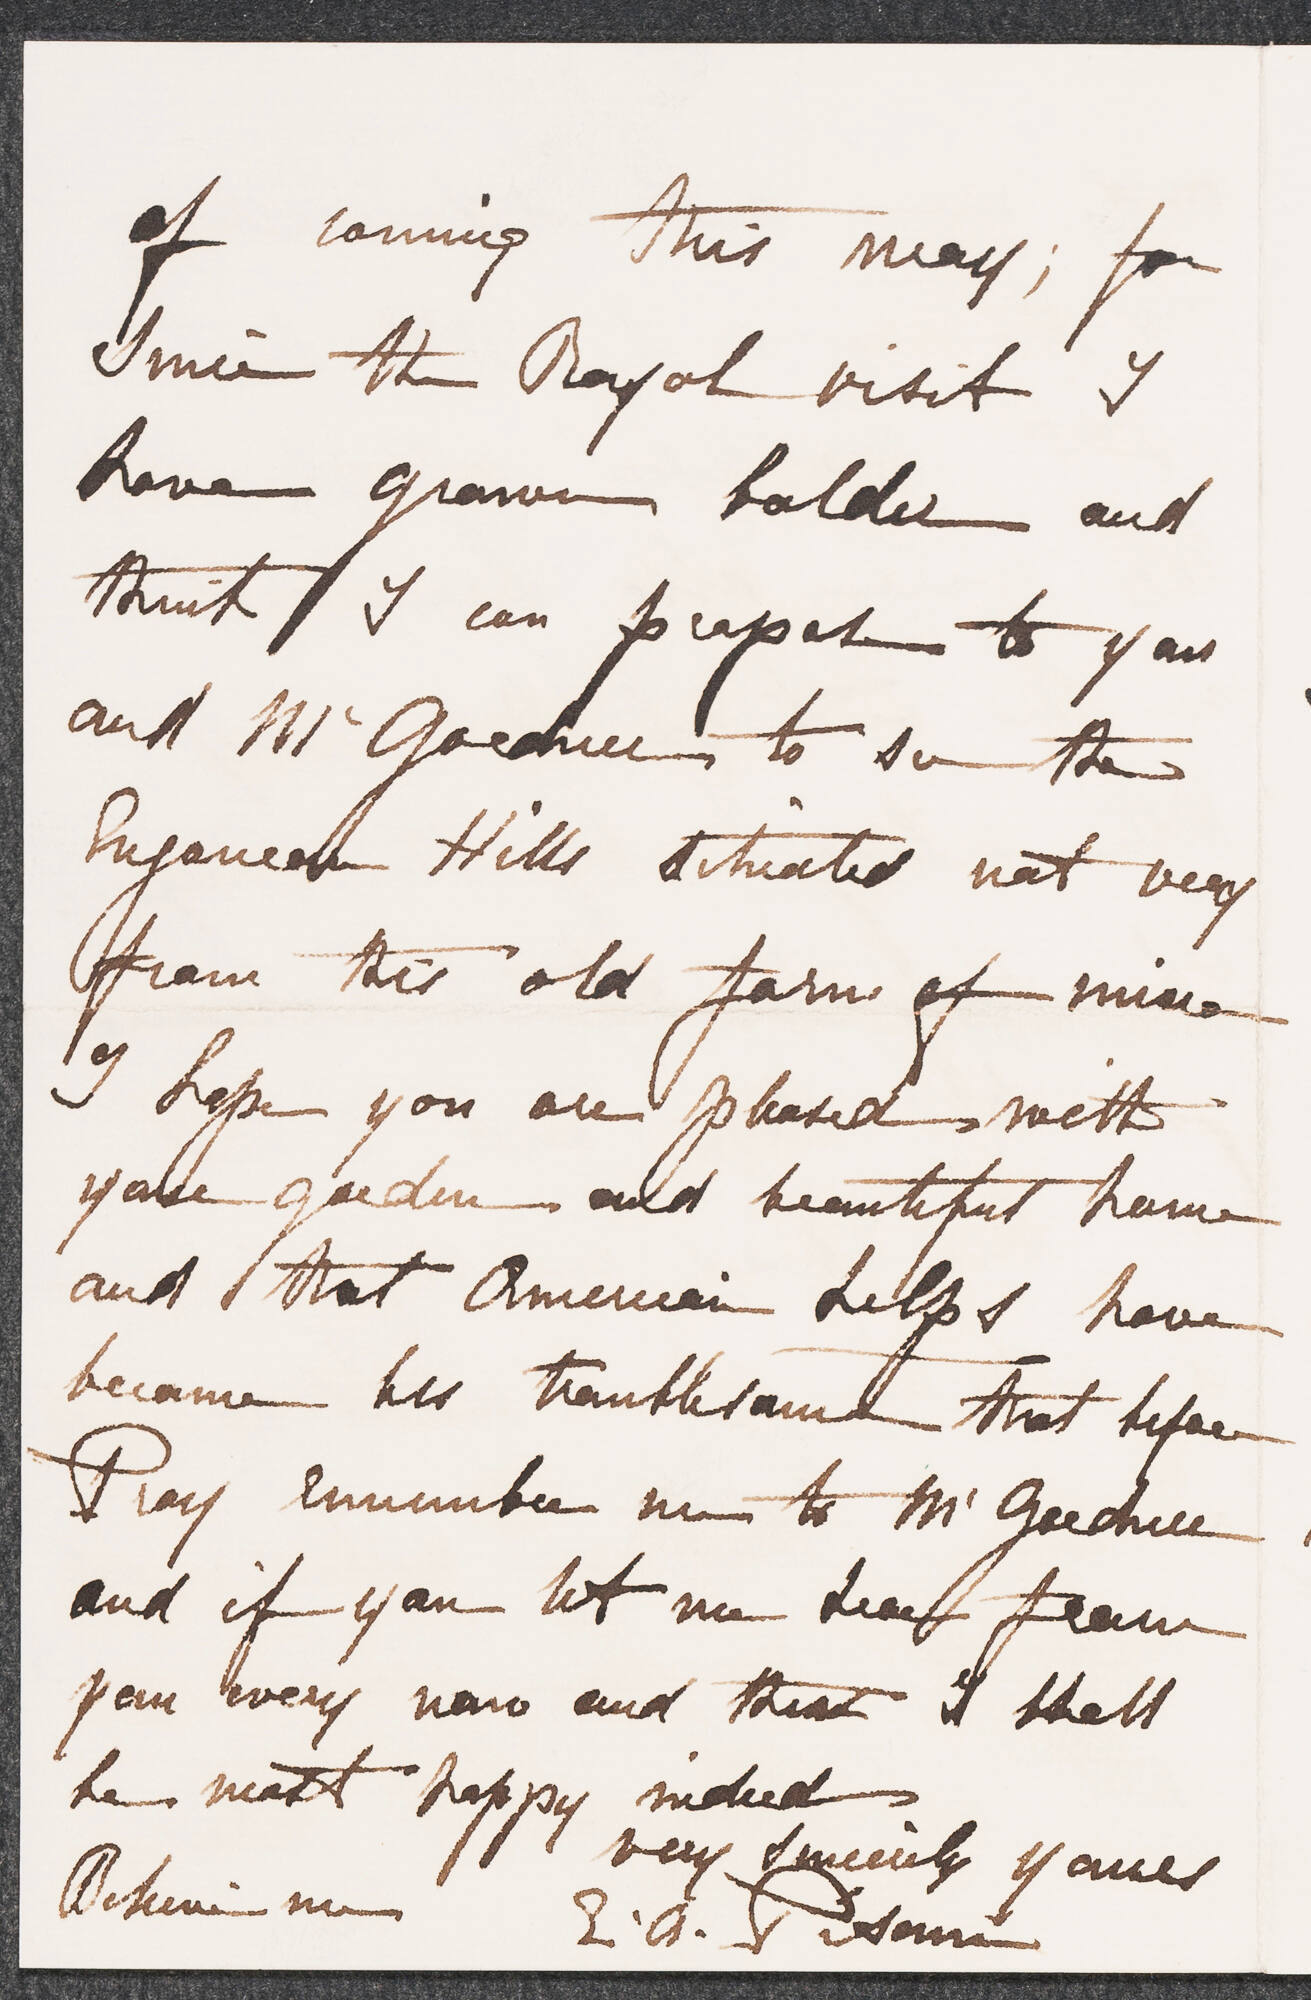 of coming this way; for
Since the Royal visit I
have grown bolder and
think I can propose to you
and Mr Gardner to see the
Euganean Hills situated not very
from this old farm of mine
I hope you are pleased with
your garden and beautiful home
and that American helps have
become less troublesome that before
Pray remember me to Mr Gardner
and if you let me hear from
you every now and then I shall
be most happy indeed
very sincerely yours
Believe me E. A. Pisani